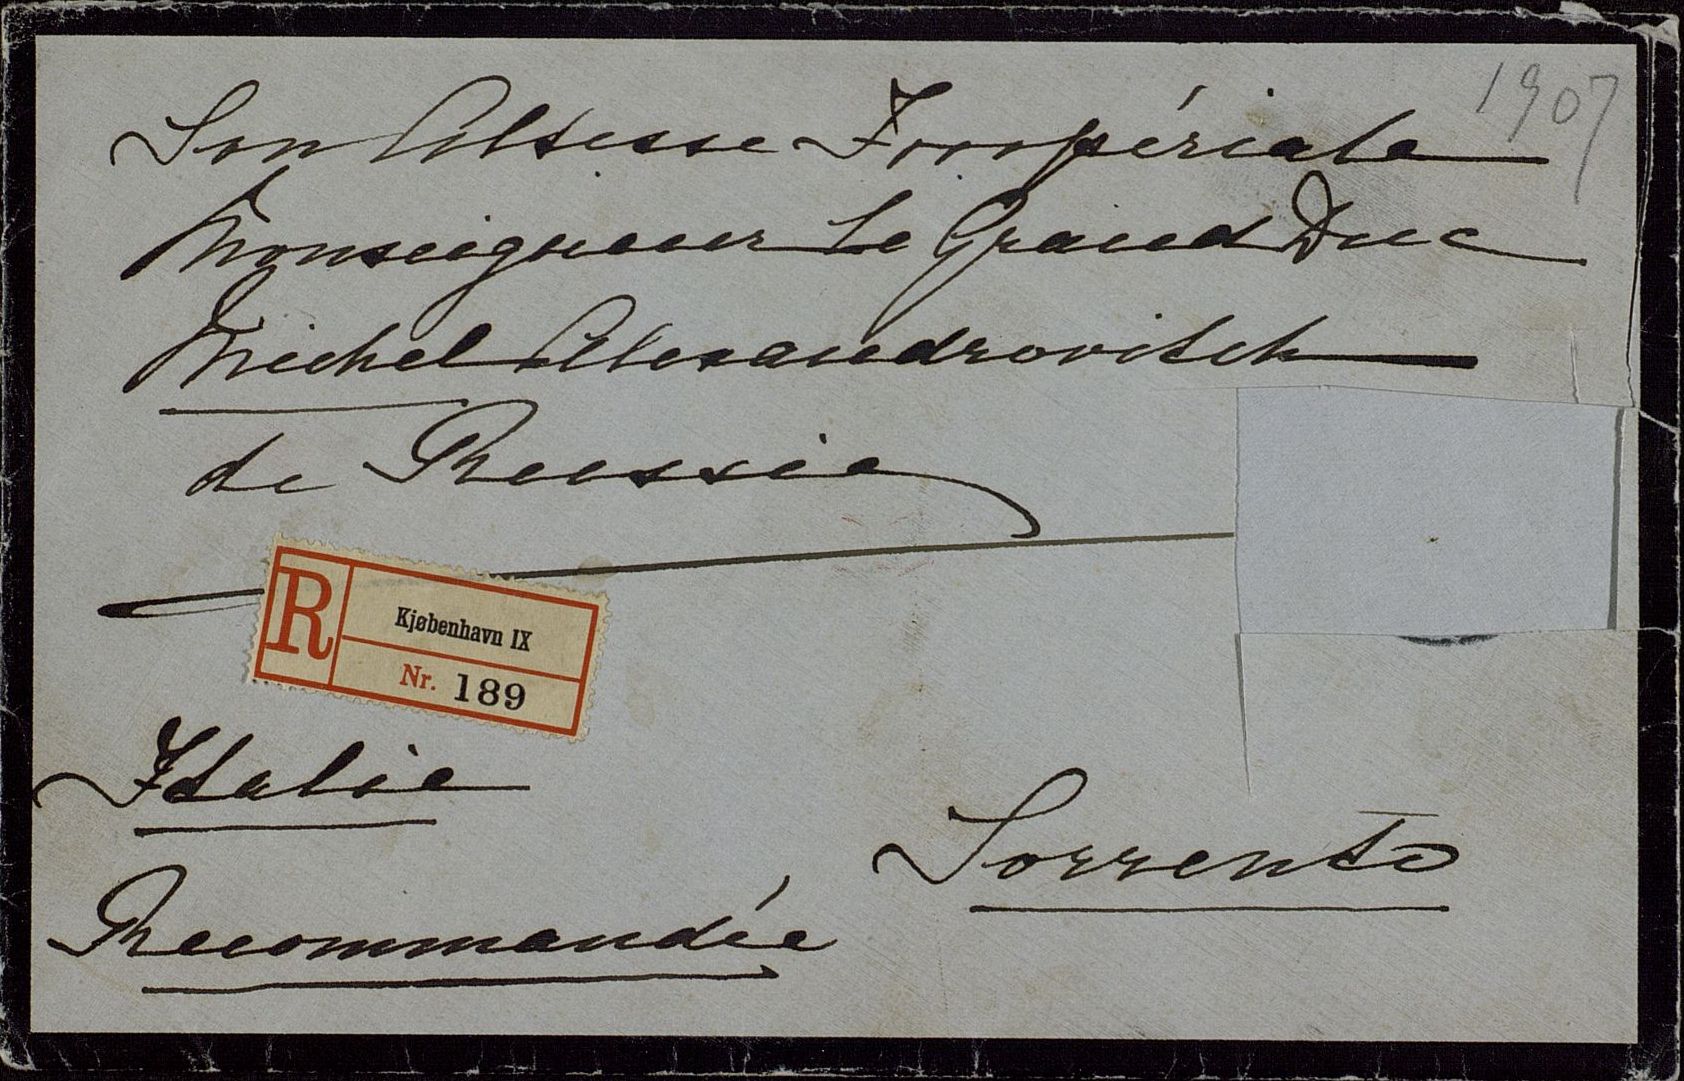 1907
Son Altesse Impériale
Monseigneur Le Grand Duc
Michel Alexandrovitch
de Russie
R
Kjøbenhavn IX
Nr. 189
Italie
Sorrento
Recommandée